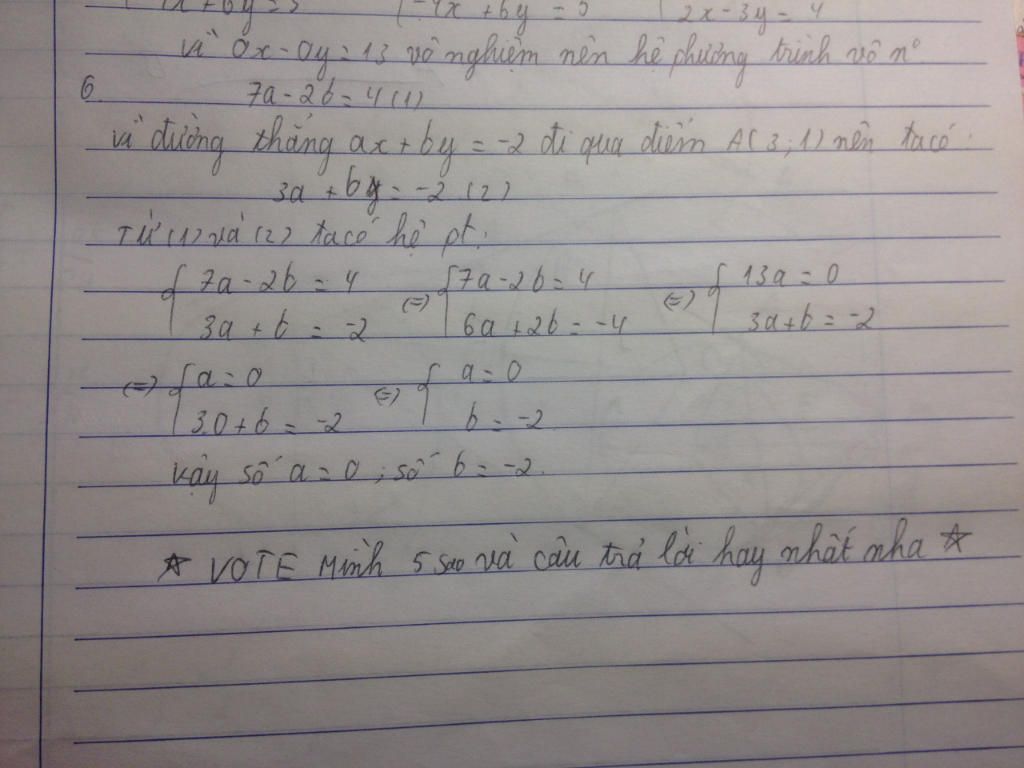 2x - 3y = 4
vì 0x - 0y = 13 vô nghiệm nên hệ phương trình vô n°
6. 7a - 2b = 4 (1)
vì đường thẳng ax + by = -2 đi qua điểm A(3;1) nên ta có:
3a + b = -2 (2)
Từ (1) và (2) ta có hệ pt:
{ 7a - 2b = 4 (=) { 7a - 2b = 4 (=) { 13a = 0
3a + b = -2 6a + 2b = -4 3a + b = -2
(=) { a = 0 (=) { a = 0
3.0 + b = -2 b = -2
Vậy số a = 0 ; số b = -2.
☆ VOTE Mình 5 sao và câu trả lời hay nhất nha ☆